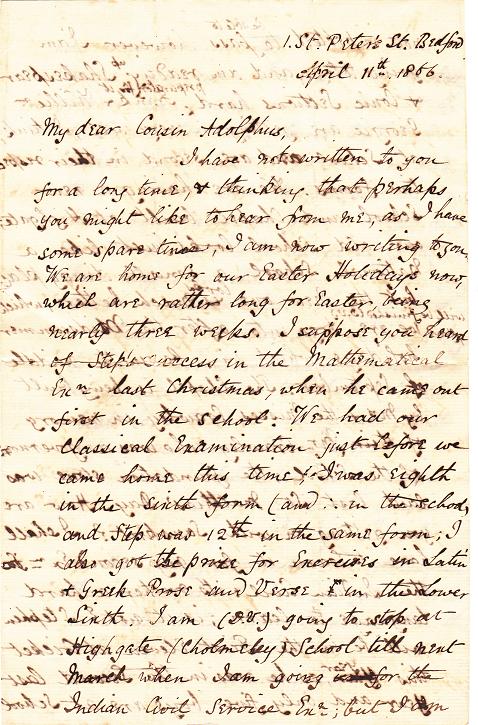 1. St. Peter's St. Bedford
April 11th. 1866.
My dear Cousin Adolphus,
I have not written to you
for a long time, & thinking that perhaps
you might like to hear from me, as I have
some spare time, I am now writing to you.
We are home for our Easter Holidays now,
which are rather long for Easter, being
nearly three weeks. I suppose you heard
of Step's success in the Mathematical
Exn last Christmas, when he came out
first in the school. We had our
Classical Examination just before we
came home this time; I was eighth
in the Sixth form (and ∴ in the school,
and Step was 12th in the same form; I
also got the prize for Exercises in Latin
& Greek Prose and Verse in the Lower
Sixth. I am (DV) going to stop at
Highgate (Cholmeley) School till next
March when I am going for the
Indian Civil Service Exn; but I am